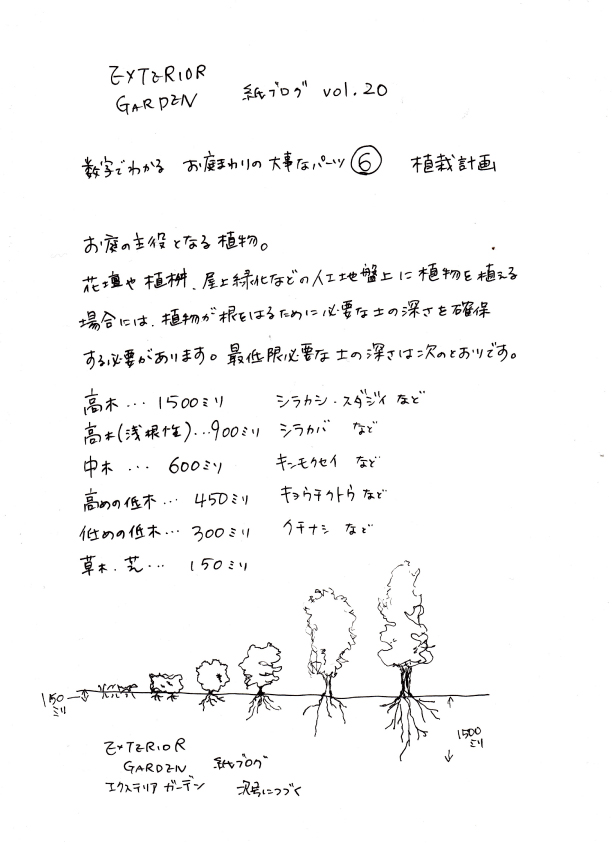 EXTERIOR
GARDEN 紙ブログ vol.20
数字でわかる お庭まわりの大事なパーツ ⑥ 植栽計画
お庭の主役となる植物。
花壇や植桝、屋上緑化などの人工地盤上に植物を植える
場合には、植物が根をはるために必要な土の深さを確保
する必要があります。最低限必要な土の深さは次のとおりです。
高木… 1500ミリ シラカシ・スダジイ など
高木(浅根性)…900ミリ シラカバ など
中木 … 600ミリ キンモクセイ など
高めの低木… 450ミリ キョウチクトウ など
低めの低木… 300ミリ クチナシ など
草木・芝… 150ミリ
150
ミリ
1500
ミリ
EXTERIOR
GARDEN 紙ブログ
エクステリア ガーデン 次号につづく